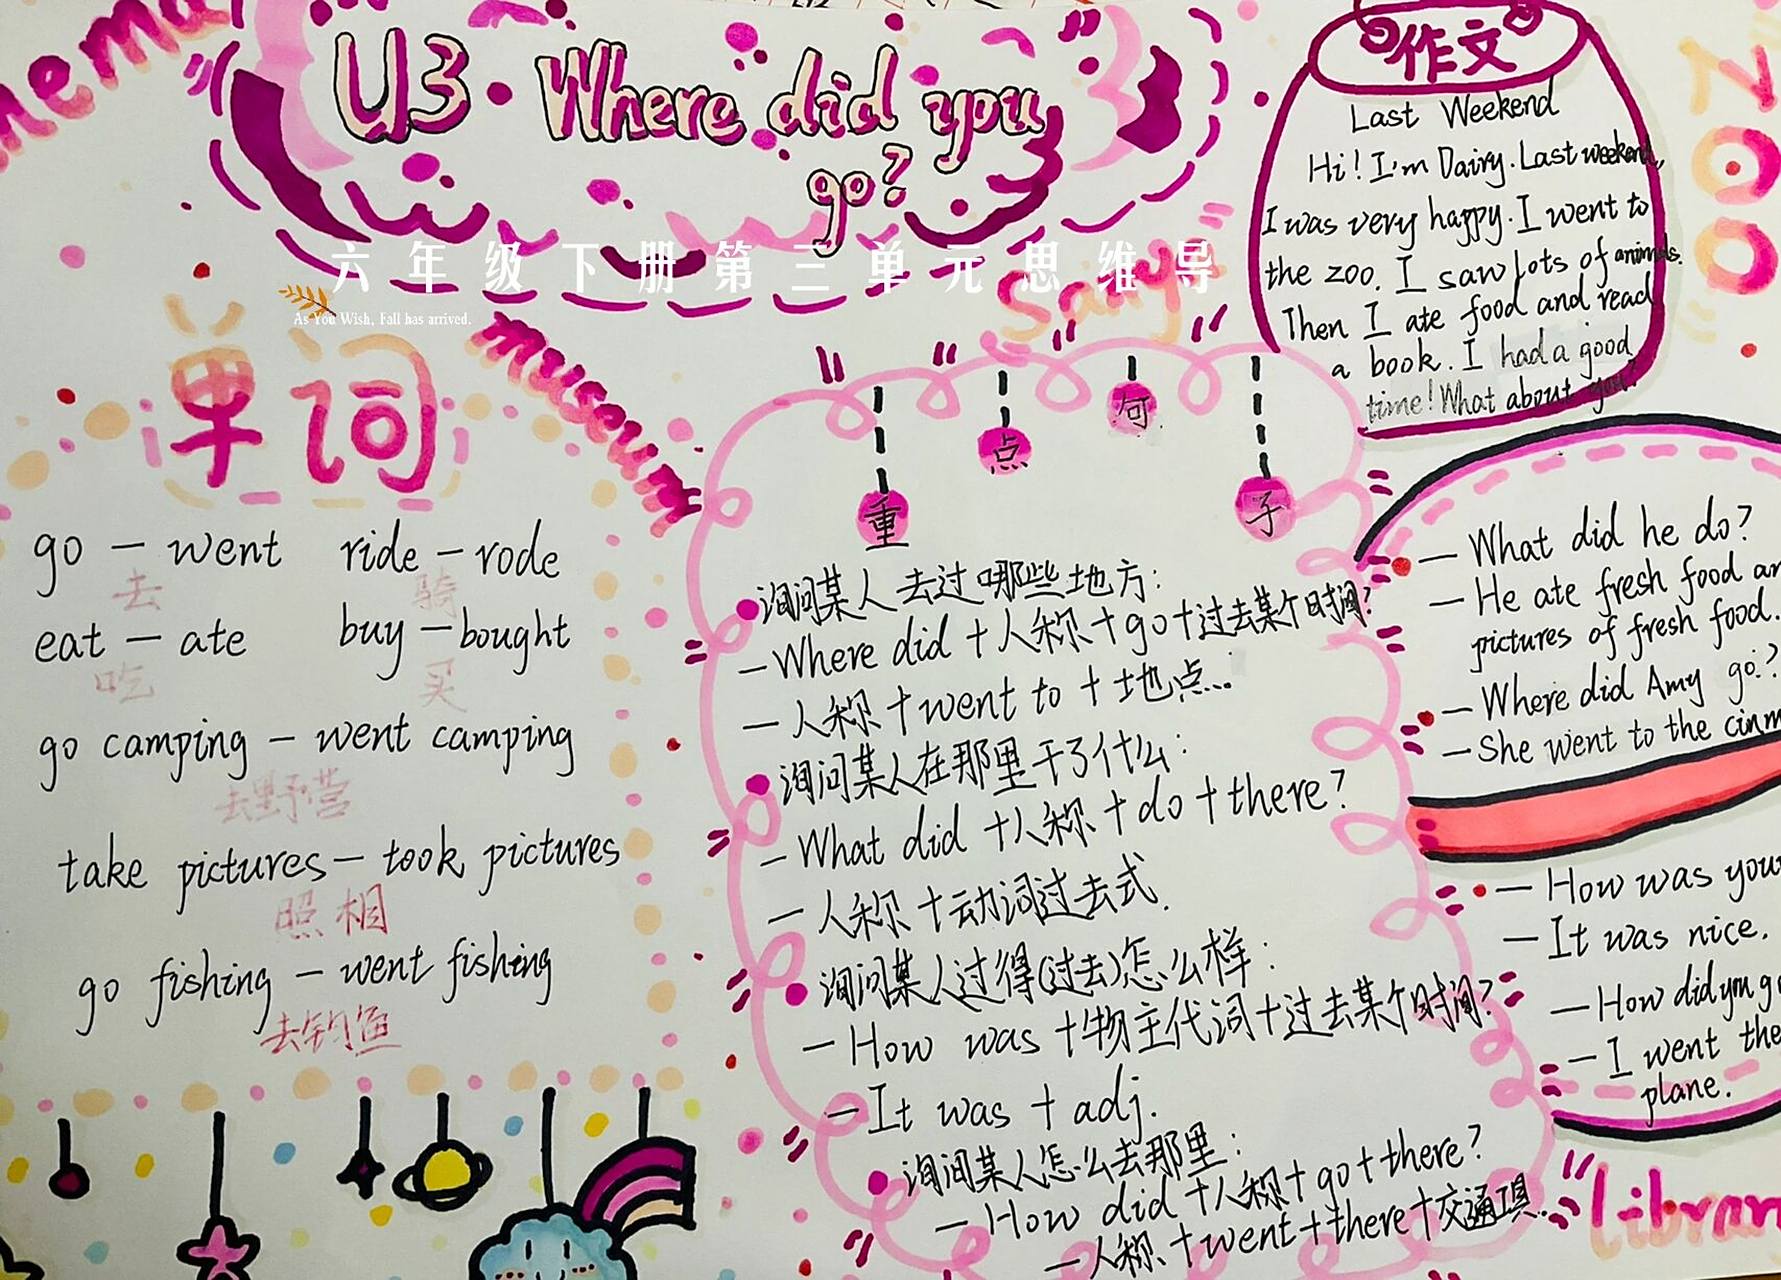 U3. Where did you
go?
六年级下册第三单元思维导
As You Wish, Fall has arrived.
museum
zoo
作文
Last Weekend
Hi! I'm Dairy. Last weekend,
I was very happy. I went to
the zoo. I saw lots of animals.
Then I ate food and read
a book. I had a good
time! What about you?
单词
go — went ride — rode
去 骑
eat — ate buy — bought
吃 买
go camping — went camping
去野营
take pictures — took pictures
照相
go fishing — went fishing
去钓鱼
重点句子
询问某人去过哪些地方:
— Where did + 人称 + go + 过去某个时间?
— 人称 + went to + 地点...
询问某人在那里干了什么:
— What did + 人称 + do + there?
— 人称 + 动词过去式.
询问某人过得(过去)怎么样:
— How was + 物主代词 + 过去某个时间?
— It was + adj.
询问某人怎么去那里:
— How did + 人称 + go + there?
— 人称 + went + there +
— What did he do?
— He ate fresh food an
pictures of fresh food.
— Where did Amy go?
— She went to the cinm
— How was your
— It was nice.
— How did you g
— I went the
plane.
librar